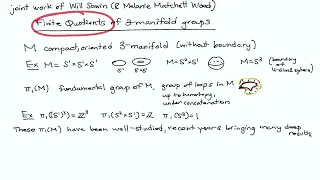 joint work of Will Sawin (& Melanie Matchett Wood)
Finite Quotients of 3-manifold groups
M compact, oriented 3-manifold (without boundary)
Ex M = S¹×S¹×S¹ M = S²×S¹ M = S³ (boundary of 4-dim sphere)
S² S¹
π₁(M) fundamental group of M, group of loops in M up to homotopy, under concatenation
Ex π₁((S¹)³) = ℤ³ π₁(S²×S¹) = ℤ π₁(S³) = 1
These π₁(M) have been well-studied, recent years bringing many deep results